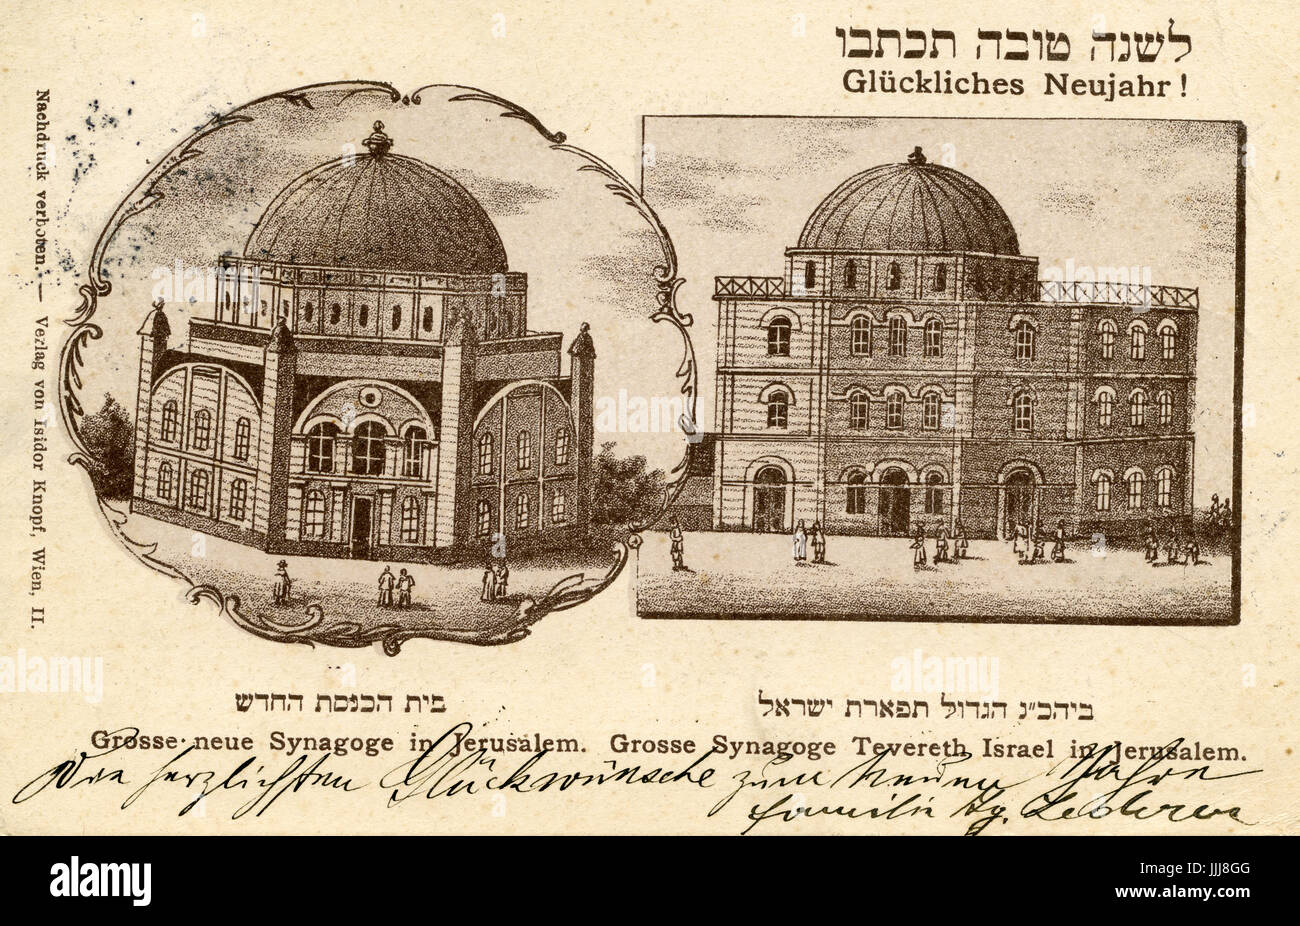 לשנה טובה תכתבו
Glückliches Neujahr!
Nachdruck verboten. — Verlag von Isidor Knopf, Wien, II.
בית הכנסת החדש
Grosse neue Synagoge in Jerusalem.
ביהכ״נ הגדול תפארת ישראל
Grosse Synagoge Tevereth Israel in Jerusalem.
Die herzlichsten Glückwünsche zum neuen Jahre
Familie
alamy stock photo
JJJ8GG
www.alamy.com